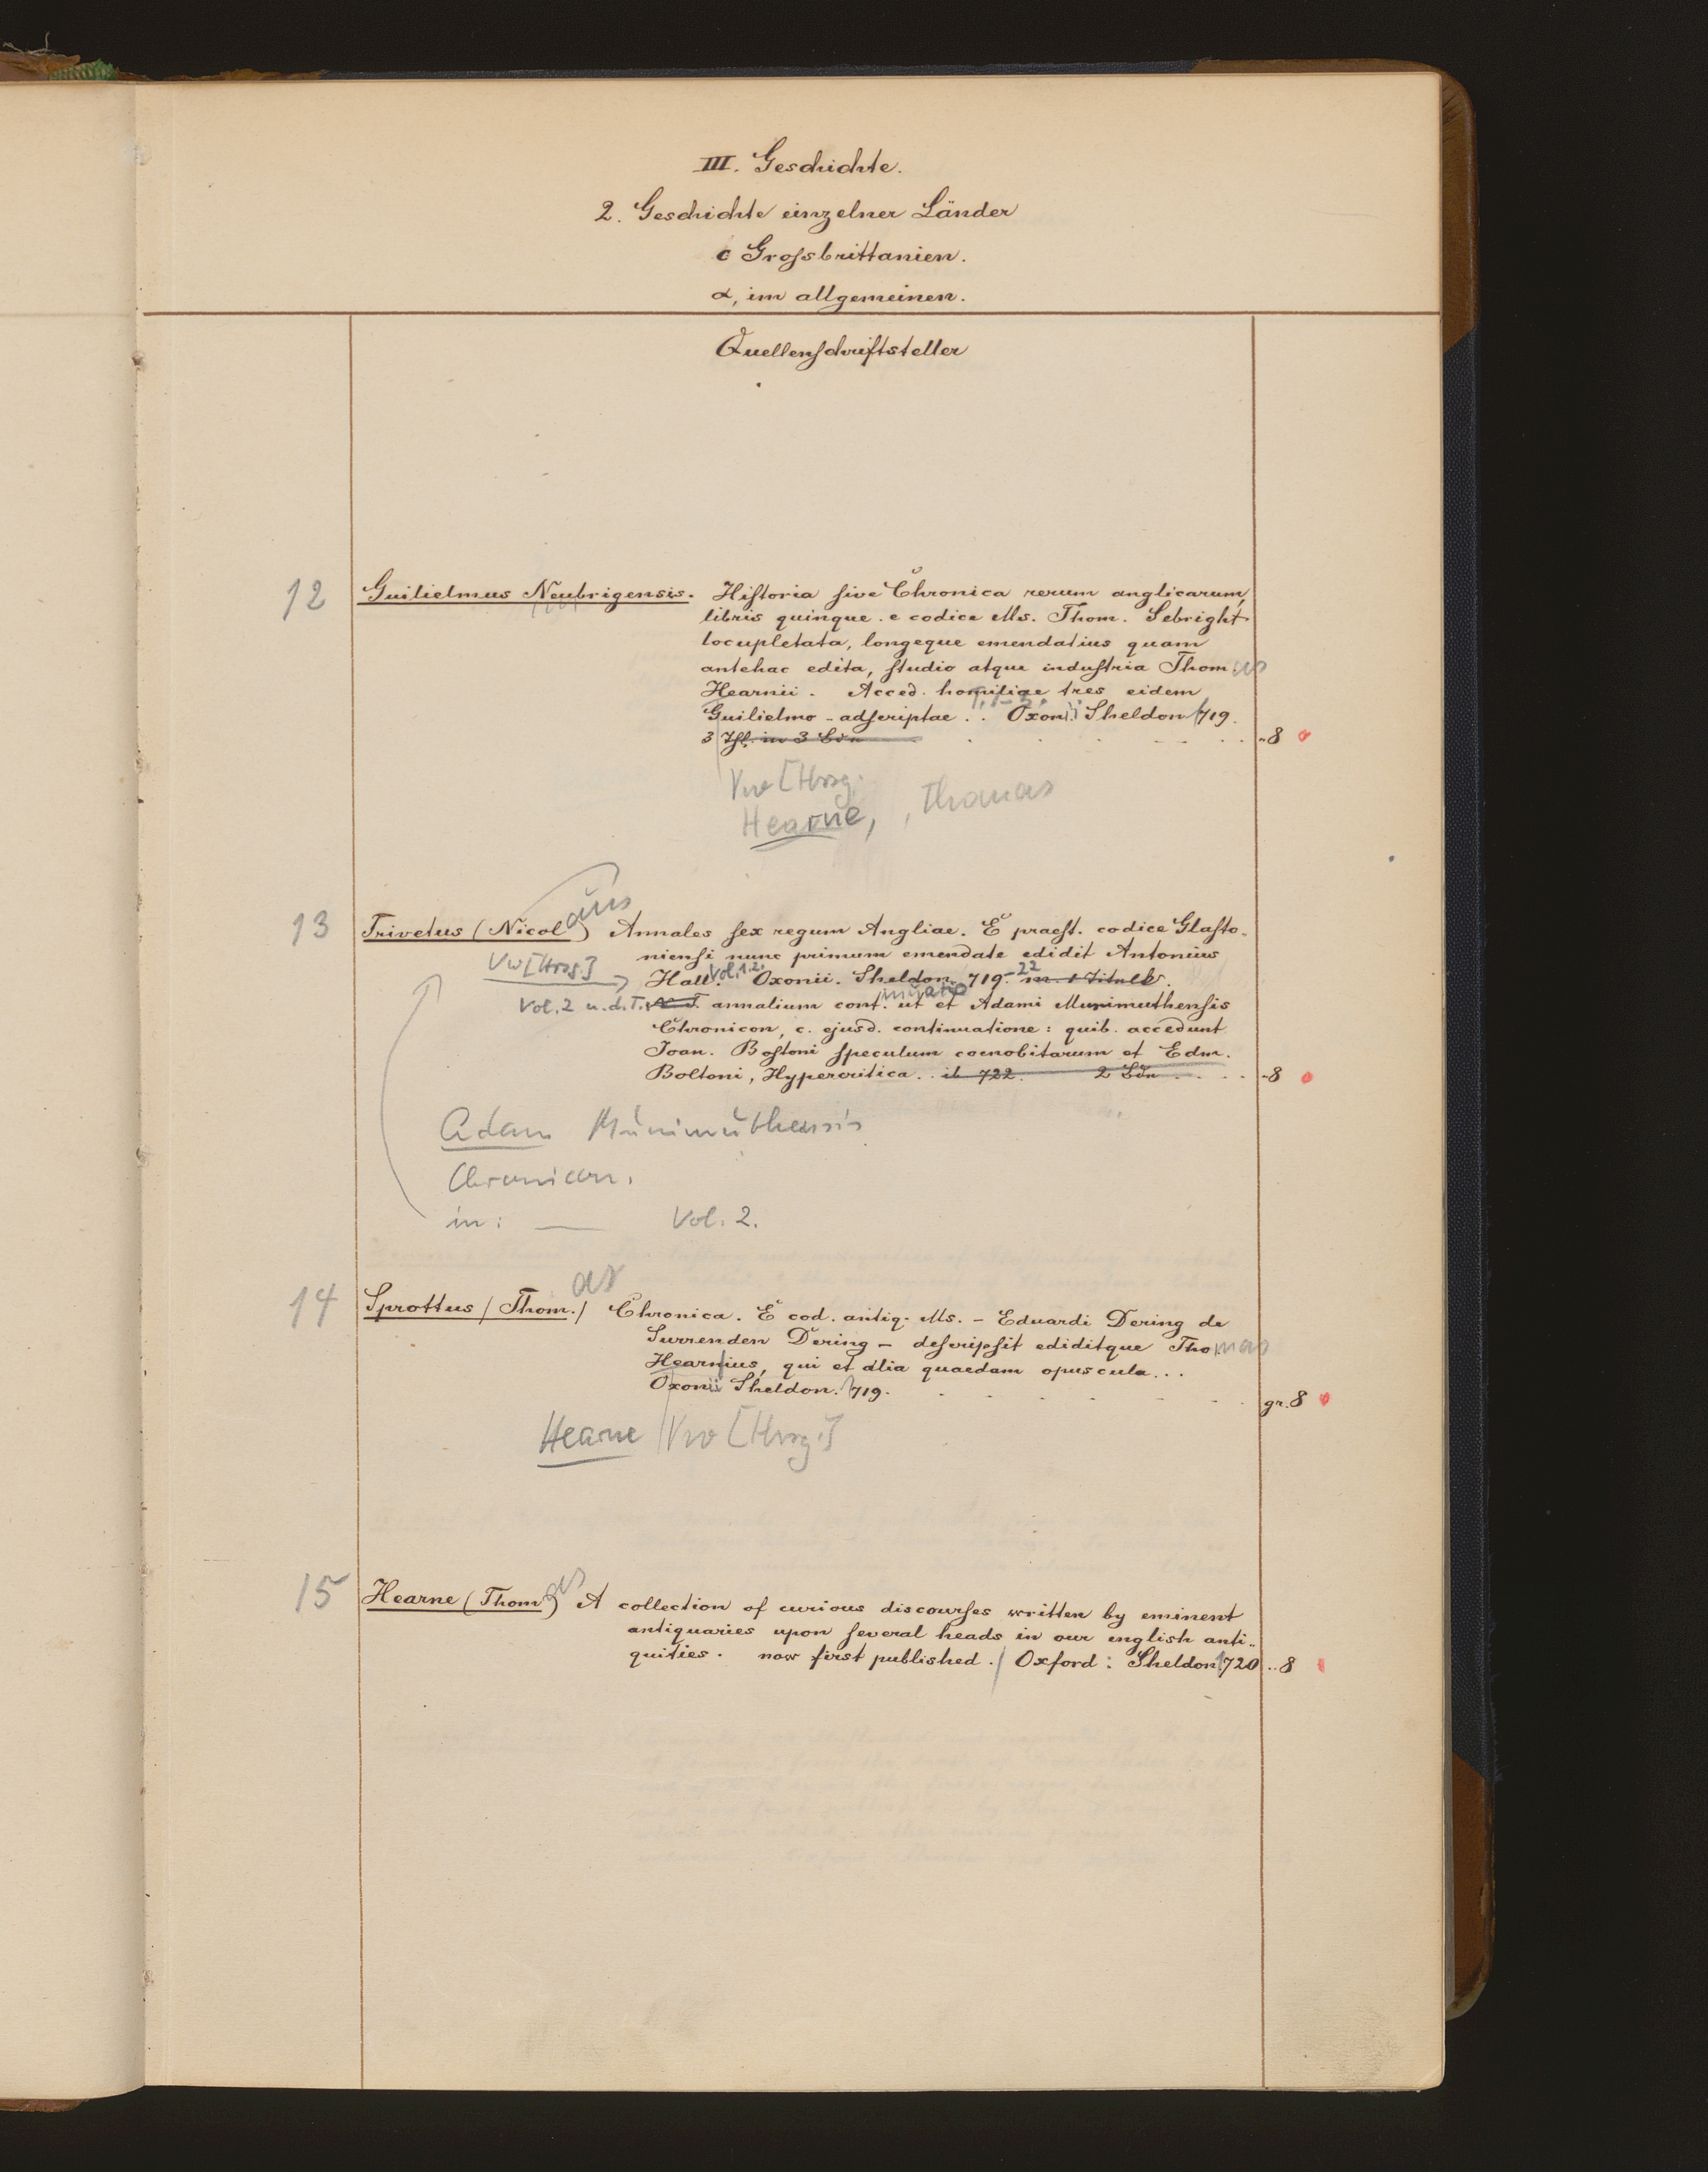 III. Geschichte.
2. Geschichte einzelner Länder
c Grossbrittanien.
α, im allgemeinen.
Quellenschriftsteller
12 Guilielmus Neubrigensis. Historia sive Chronica rerum anglicarum,
libris quinque. e codice Ms. Thom. Sebright
locupletata, longeque emendatius quam
antehac edita, studio atque industria Thomas
Hearnii. Acced. homiliae tres eidem
T. 1-3.
Guilielmo - adscriptae . . Oxonii Sheldon 719.
3 Thl. in 3 Bdn . . . . . . . 8
Vw [Hrsg.
Hearne, , Thomas
13 Trivetus (Nicolaus) Annales sex regum Angliae. E praest. codice Glasto-
niensi nunc primum emendate edidit Antonius
Vw [Hrsg.] Hall. Vol. 1.2. Oxonii. Sheldon. 719.-22 m. 1 Titulk.
Vol. 2 u.d.T.: annalium continuatio ut et Adami Murimuthensis
Chronicon, c. ejusd. continuatione: quib. accedunt
Joan. Bostoni speculum coenobitarum et Edm.
Boltoni, Hypercritica. . ib 722. 2 Bdn . . . . 8
Adam Murimuthensis
Chronicon.
in: — Vol. 2.
14 Sprottus (Thomas) Chronica. E cod. antiq. Ms. - Eduardi Dering de
Surrenden Dering - descripsit ediditque Thomas
Hearnius, qui et alia quaedam opuscula...
Oxonii Sheldon. 719. . . . . . . gr. 8
Hearne Vw [Hrsg.]
15 Hearne (Thomas) A collection of curious discourses written by eminent
antiquaries upon several heads in our english anti-
quities. now first published. / Oxford: Sheldon 1720 .. 8